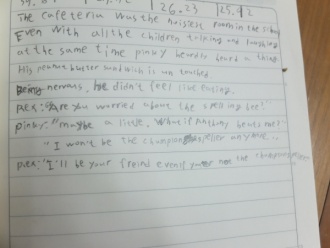 26.23 25.92
The cafeteria was the noisiest room in the
Even with all the children talking and laughing
at the same time pinky heard a thing
His peanut butter sandwich is un touched.
Being nervous, he didn't feel like eating.
"Are you worried about the spelling bee?"
pinky: "maybe a little. What if Anthony beats me?"
"I won't be the champion speller any more.
"I'll be your freind even if you're not the champion